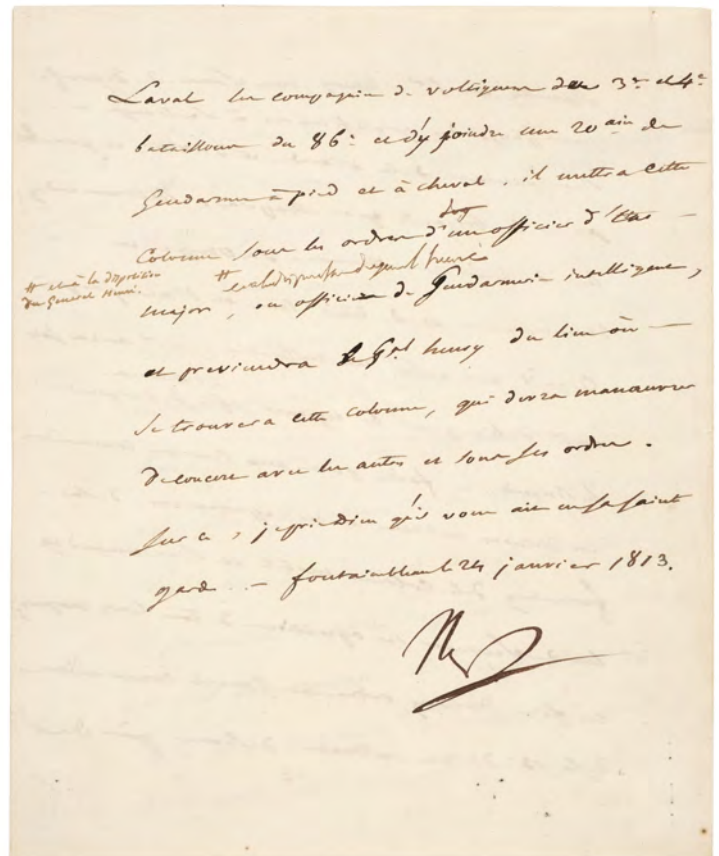 Laval les compagnies de voltigeurs des 3e et 4e
bataillons du 86e et d'y joindre une 20aine de
Gendarmes à pied et à cheval. il mettra cette
Colonne sous les ordres d'un officier d'Etat
# et à la disposition
du General Henri.
# et à la disposition du gnal henri
major, ou officier de Gendarmerie intelligent,
et previendra le Gal henry du lieu où
se trouvera cette colonne, qui devra manœuvrer
de concert avec les autres et sous ses ordres.
sur ce, je prie dieu qu'il vous ait en sa sainte
garde. – fontainebleau le 24 janvier 1813.